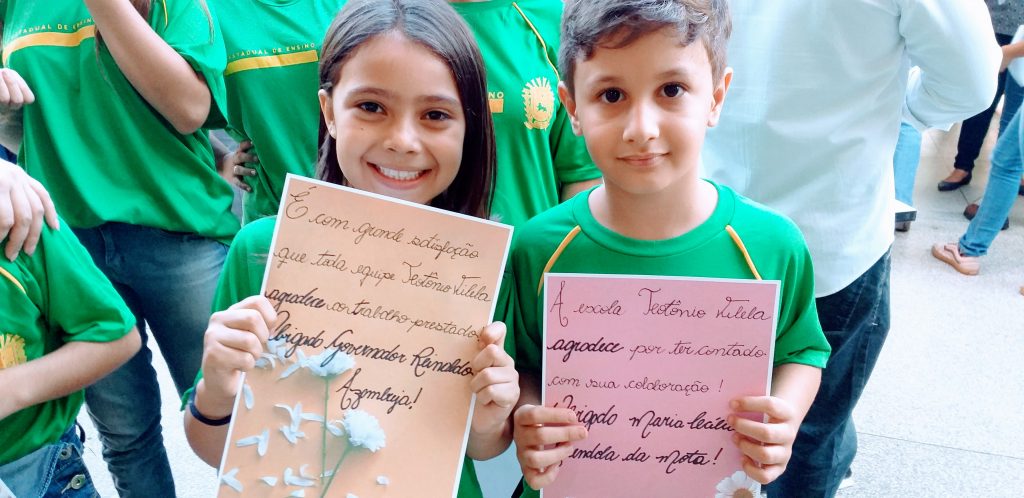 ESTADUAL DE ENSINO
STADUAL DE ENSINO
NO
É com grande satisfação
que toda equipe Teotônio Vilela
agradece trabalho prestado
Obrigado Governador Reinaldo
Azambuja!
A escola Teotônio Vilela
agradece por ter contado
com sua colaboração!
Obrigado Maria Cecília
endola da Mota!